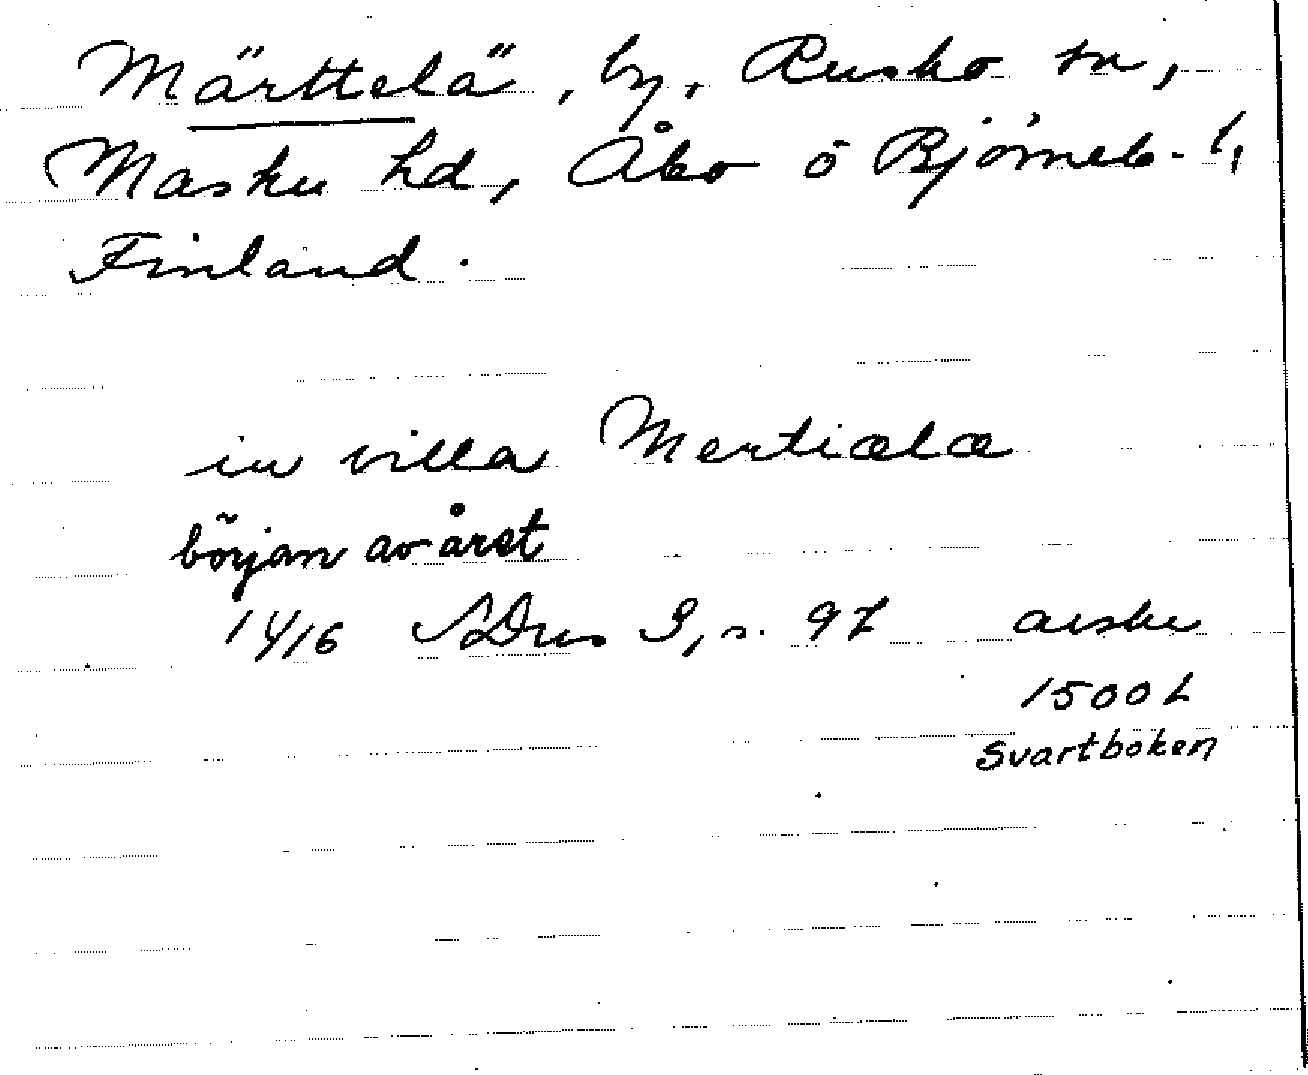 Märttelä, by, Rusko sn,
Masku hd, Åbo o Björneb. l,
Finland.
in villa Mertiælæ
början av året
1416 SDns I, s. 97 avskr
1500 t
Svartboken